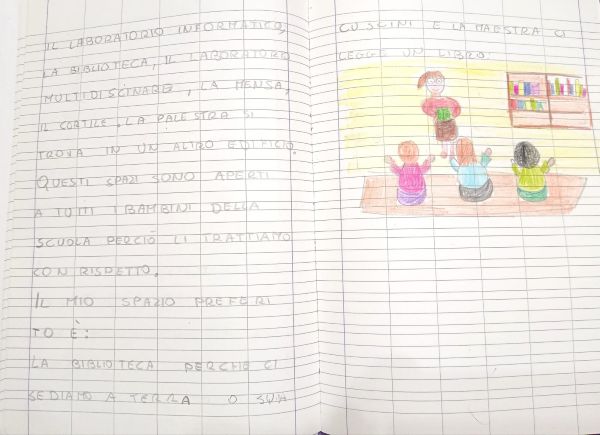 IL LABORATORIO INFORMATICO,
LA BIBLIOTECA, IL LABORATORIO
MULTIDISCINARE, LA MENSA,
IL CORTILE. LA PALESTRA SI
TROVA IN UN ALTRO EDIFICIO.
QUESTI SPAZI SONO APERTI
A TUTTI I BAMBINI DELLA
SCUOLA PERCIÒ LI TRATTIAMO
CON RISPETTO.
IL MIO SPAZIO PREFERI
TO È:
LA BIBLIOTECA PERCHE CI
SEDIAMO A TERRA O SUI
CUSCINI E LA MAESTRA CI
LEGGE UN LIBRO.